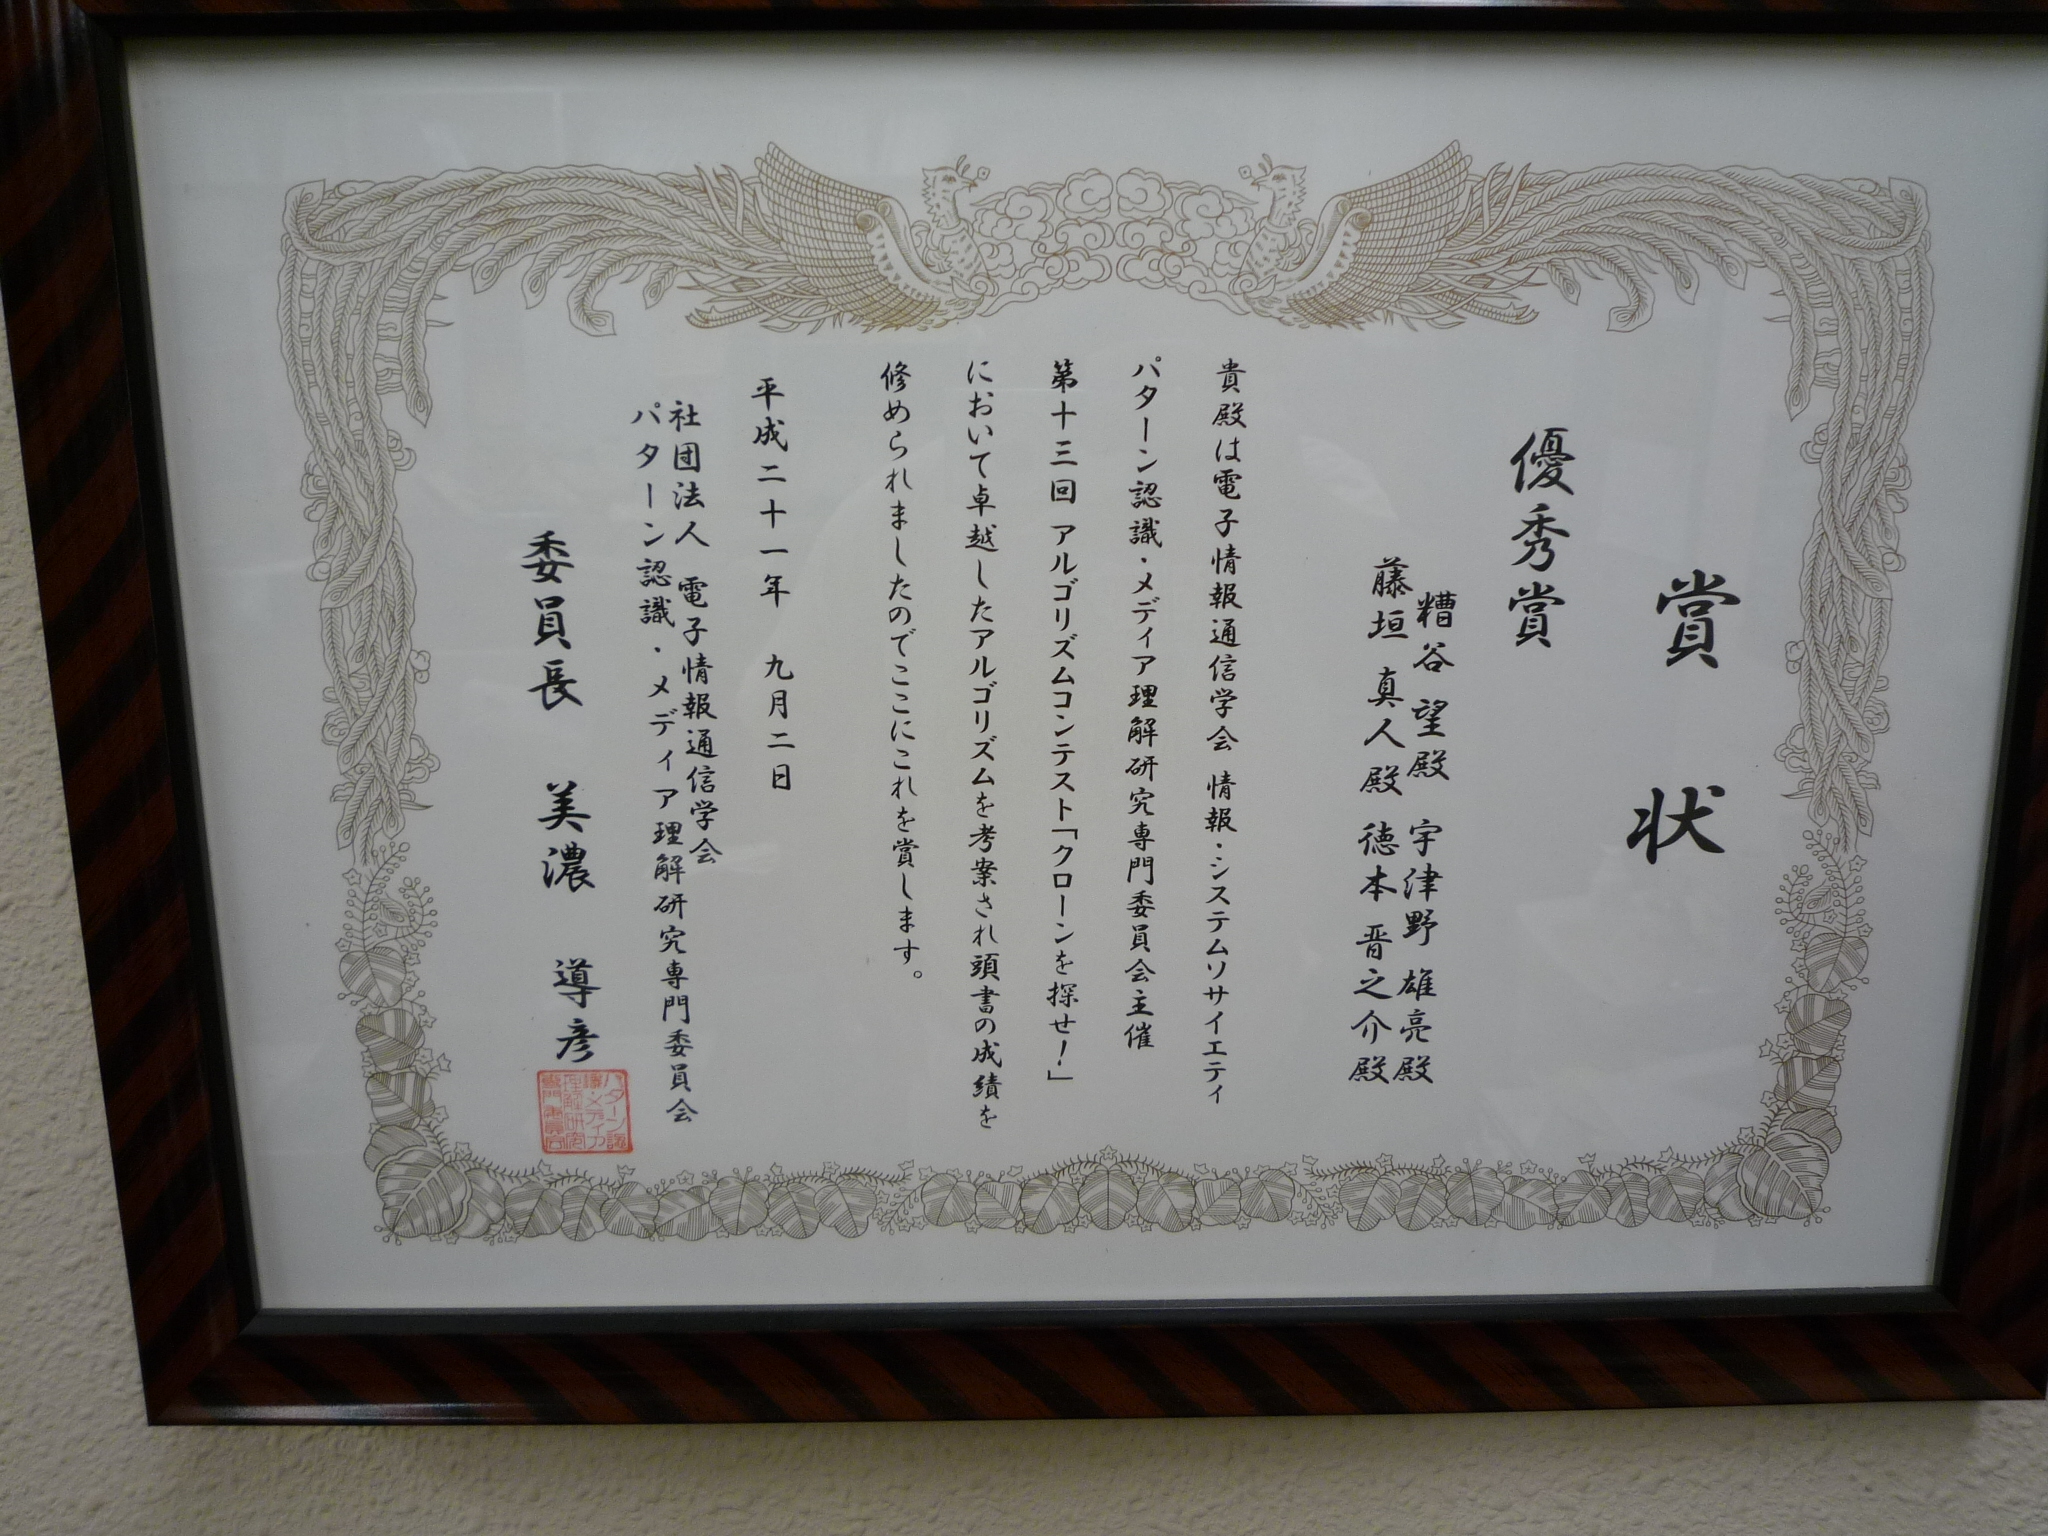 賞状
優秀賞
糟谷 望殿 宇津野 雄亮殿
藤垣 真人殿 徳本 晋之介殿
貴殿は電子情報通信学会 情報・システムソサイエティ
パターン認識・メディア理解研究専門委員会主催
第十三回 アルゴリズムコンテスト「クローンを探せ!」
において卓越したアルゴリズムを考案され頭書の成績を
修められましたのでここにこれを賞します。
平成二十一年 九月二日
社団法人 電子情報通信学会
パターン認識・メディア理解研究専門委員会
委員長 美濃 導彦
パターン認
識・メディア
理解研究
専門委員会